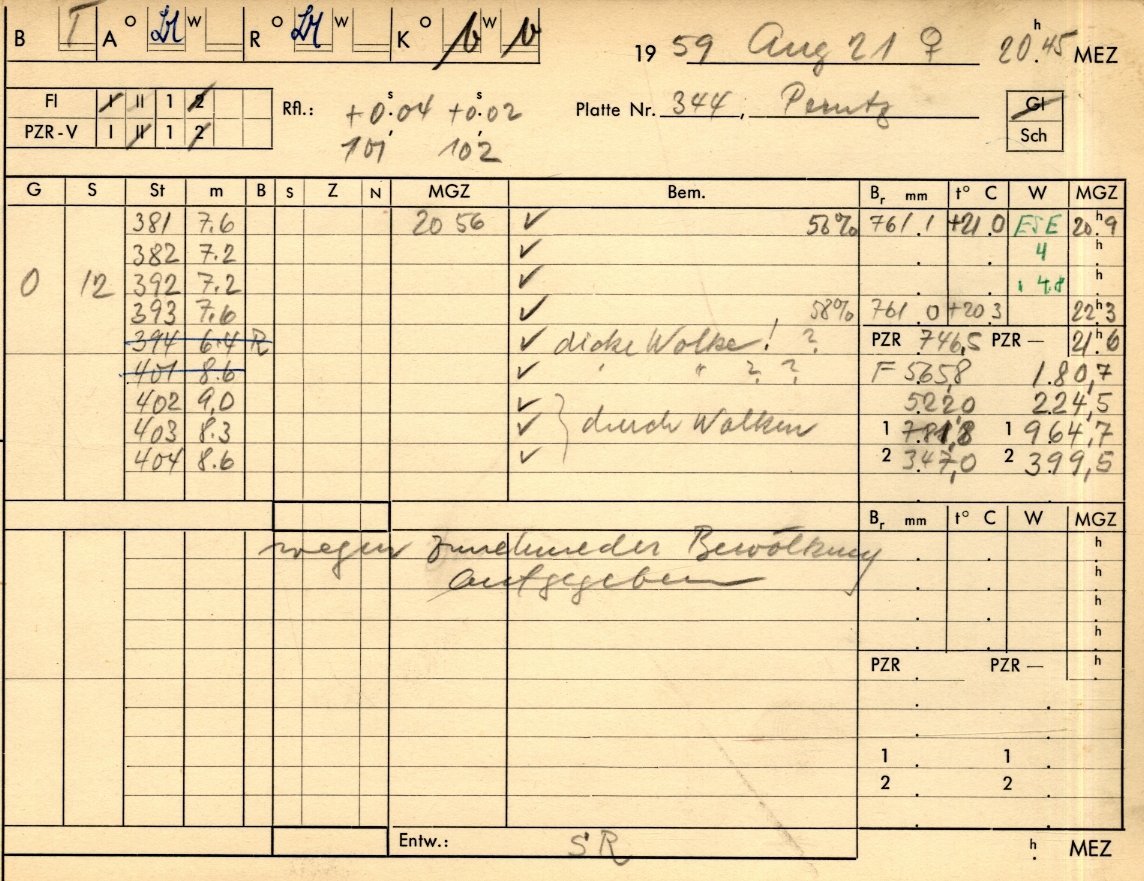 B T A O W R O W K O W 19 59 Aug 21 ♀ 20 h 45 MEZ
FI I II 1 2 Rfl.: +0.s04 +0.s02 Platte Nr. 344, Perutz Gl
PZR-V I II 1 2 101 102 Sch
G S St m B S Z N MGZ Bem. Br mm t° C W MGZ
381 7.6 20 56 ✓ 58% 761.1 +21.0 ESE 20.h9
382 7.2 ✓ 4 h
0 12 392 7.2 ✓ 4.8 h
393 7.6 ✓ 58% 761.0 +20.3 22h3
394 6.4 R ✓ dicke Wolke! ? PZR 746,5 PZR — 21h6
401 8.6 ✓ " ? ? F 565,8 1.80,7
402 9,0 ✓ 522,0 224,5
403 8.3 ✓ durch Wolken 1 781,8 1 964,7
404 8.6 ✓ 2 347,0 2 399,5
Br mm t° C W MGZ
wegen zunehmender Bewölkung h
aufgegeben h
h
h
PZR PZR — h
1 1
2 2
Entw.: SR h MEZ